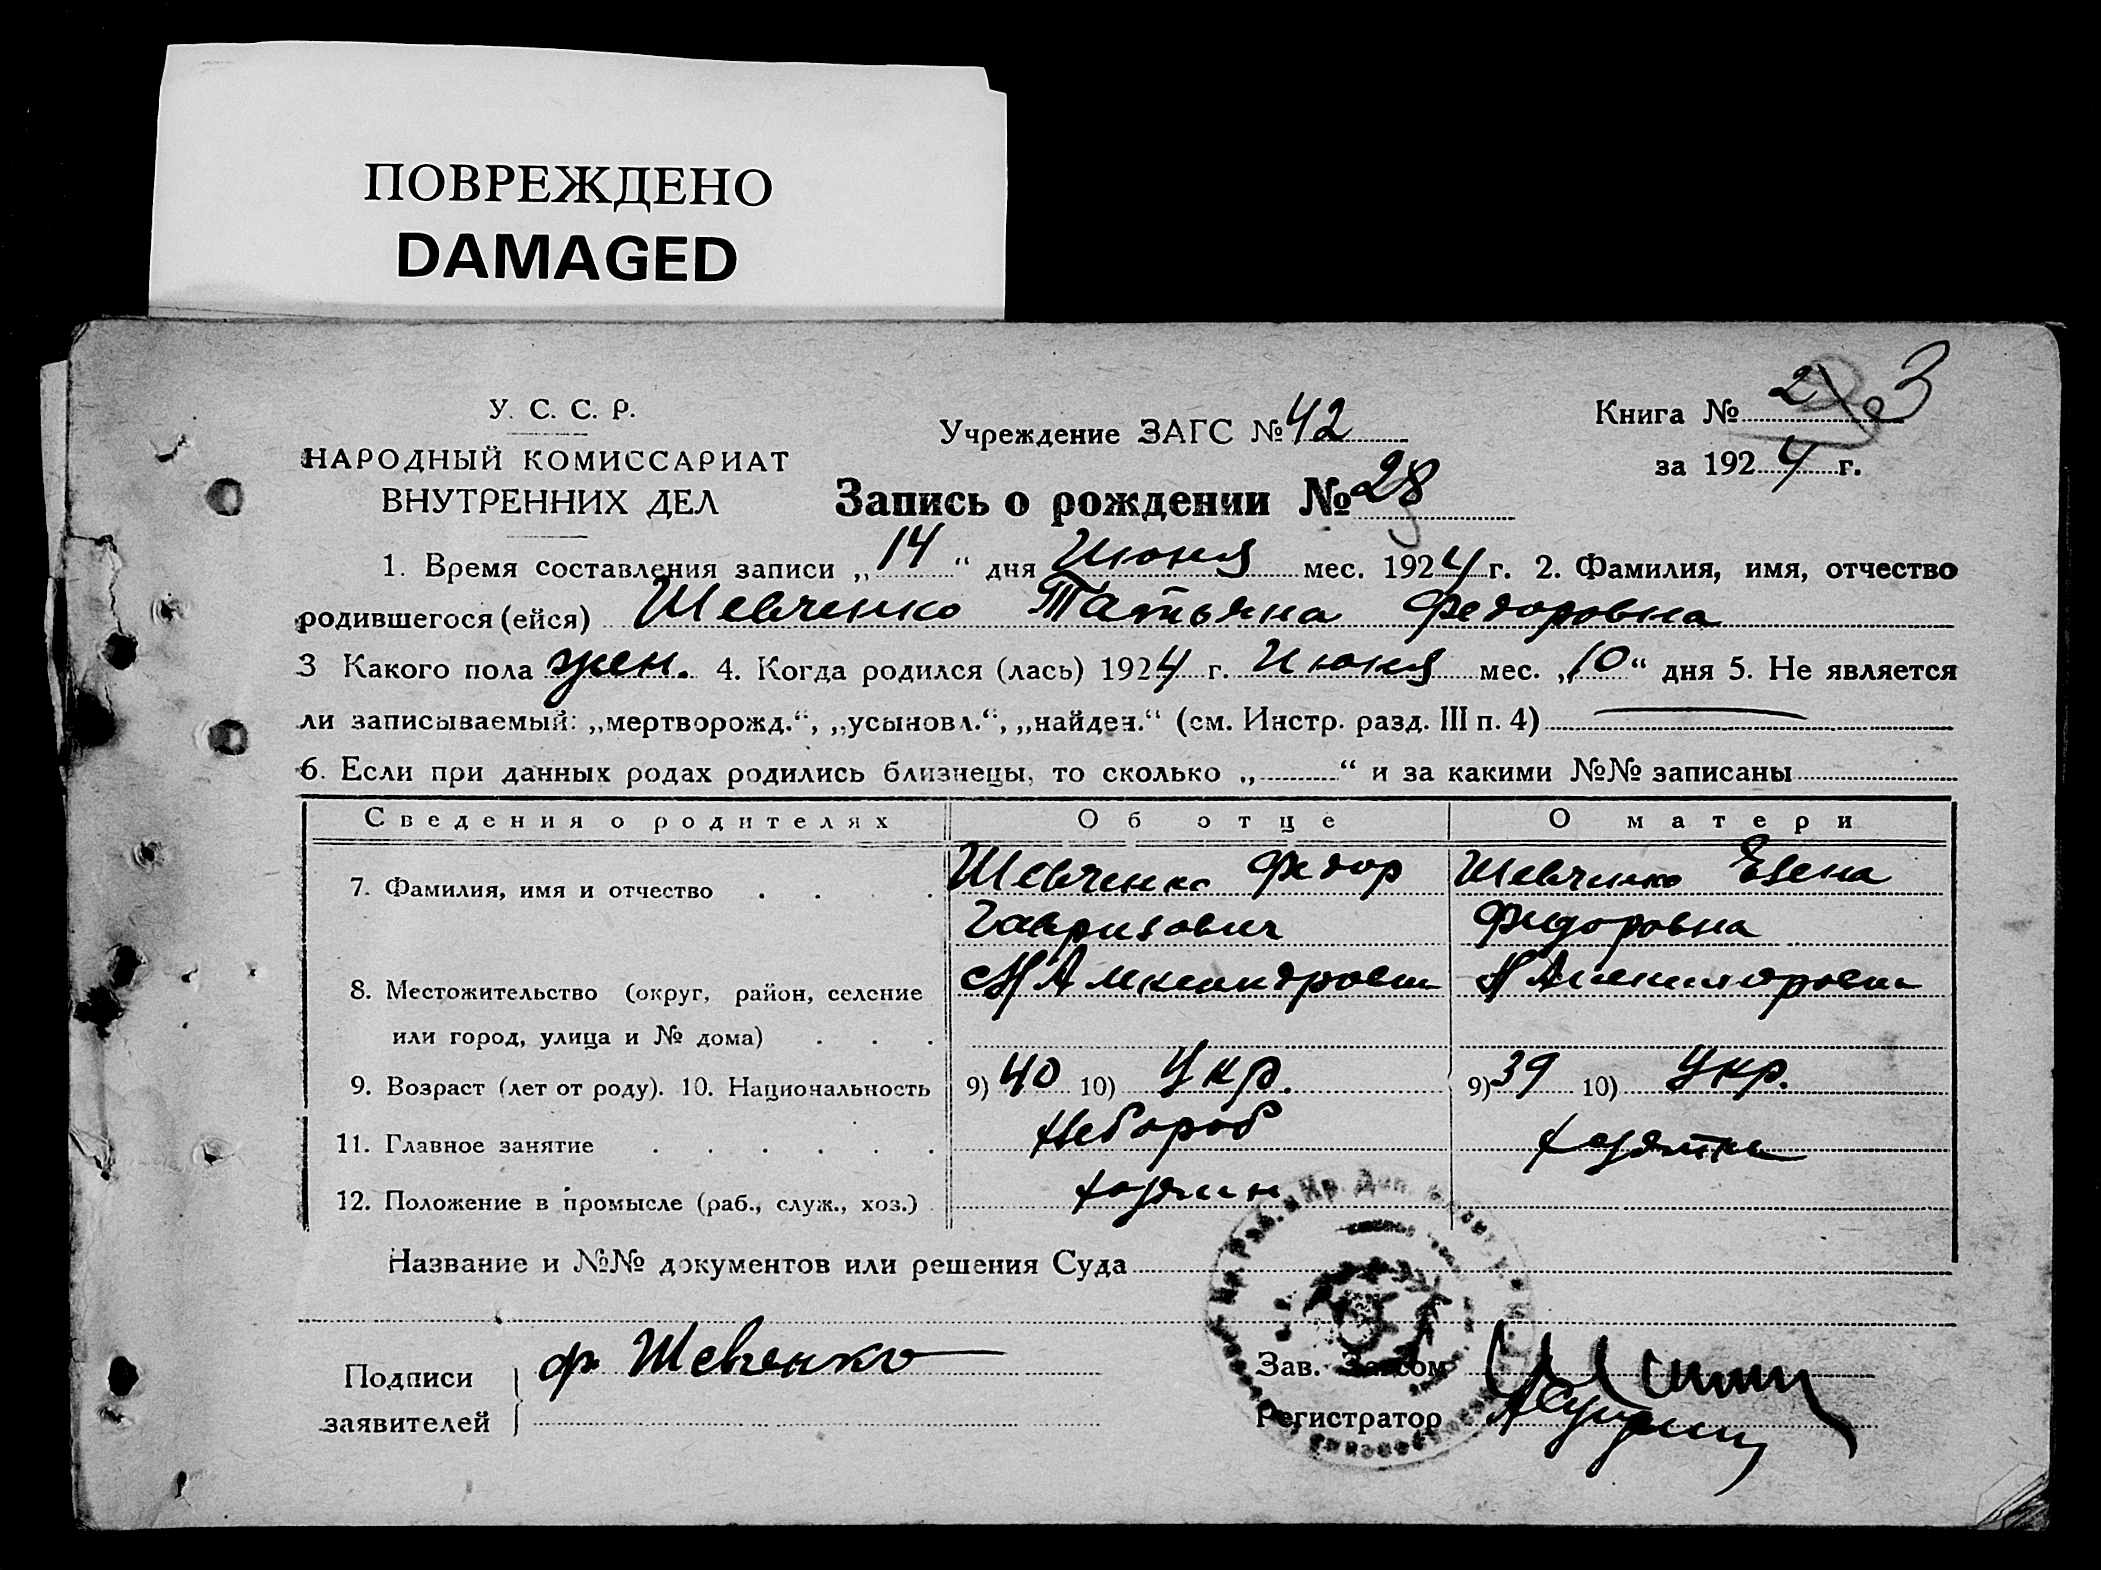 ПОВРЕЖДЕНО
DAMAGED
У. С. С. Р.
НАРОДНЫЙ КОМИССАРИАТ
ВНУТРЕННИХ ДЕЛ
Учреждение ЗАГС № 42
Книга № 2 3
за 1924 г.
Запись о рождении № 28
1. Время составления записи „14“ дня Июня мес. 1924 г. 2. Фамилия, имя, отчество
родившегося (ейся) Шевченко Татьяна Федоровна
3 Какого пола жен. 4. Когда родился (лась) 1924 г. Июня мес. „10“ дня 5. Не является
ли записываемый: „мертворожд.“, „усыновл.“, „найден.“ (см. Инстр. разд. III п. 4)
6. Если при данных родах родились близнецы, то сколько „ “ и за какими №№ записаны
Сведения о родителях Об отце О матери
7. Фамилия, имя и отчество Шевченко Федор Шевченко Елена
Гаврилович Федоровна
8. Местожительство (округ, район, селение
или город, улица и № дома)
9. Возраст (лет от роду). 10. Национальность 9) 40 10) Укр. 9) 39 10) Укр.
11. Главное занятие Хлебороб
12. Положение в промысле (раб., служ., хоз.)
Название и №№ документов или решения Суда
Подписи
заявителей
Ф Шевченко
Зав. Загсом
Регистратор